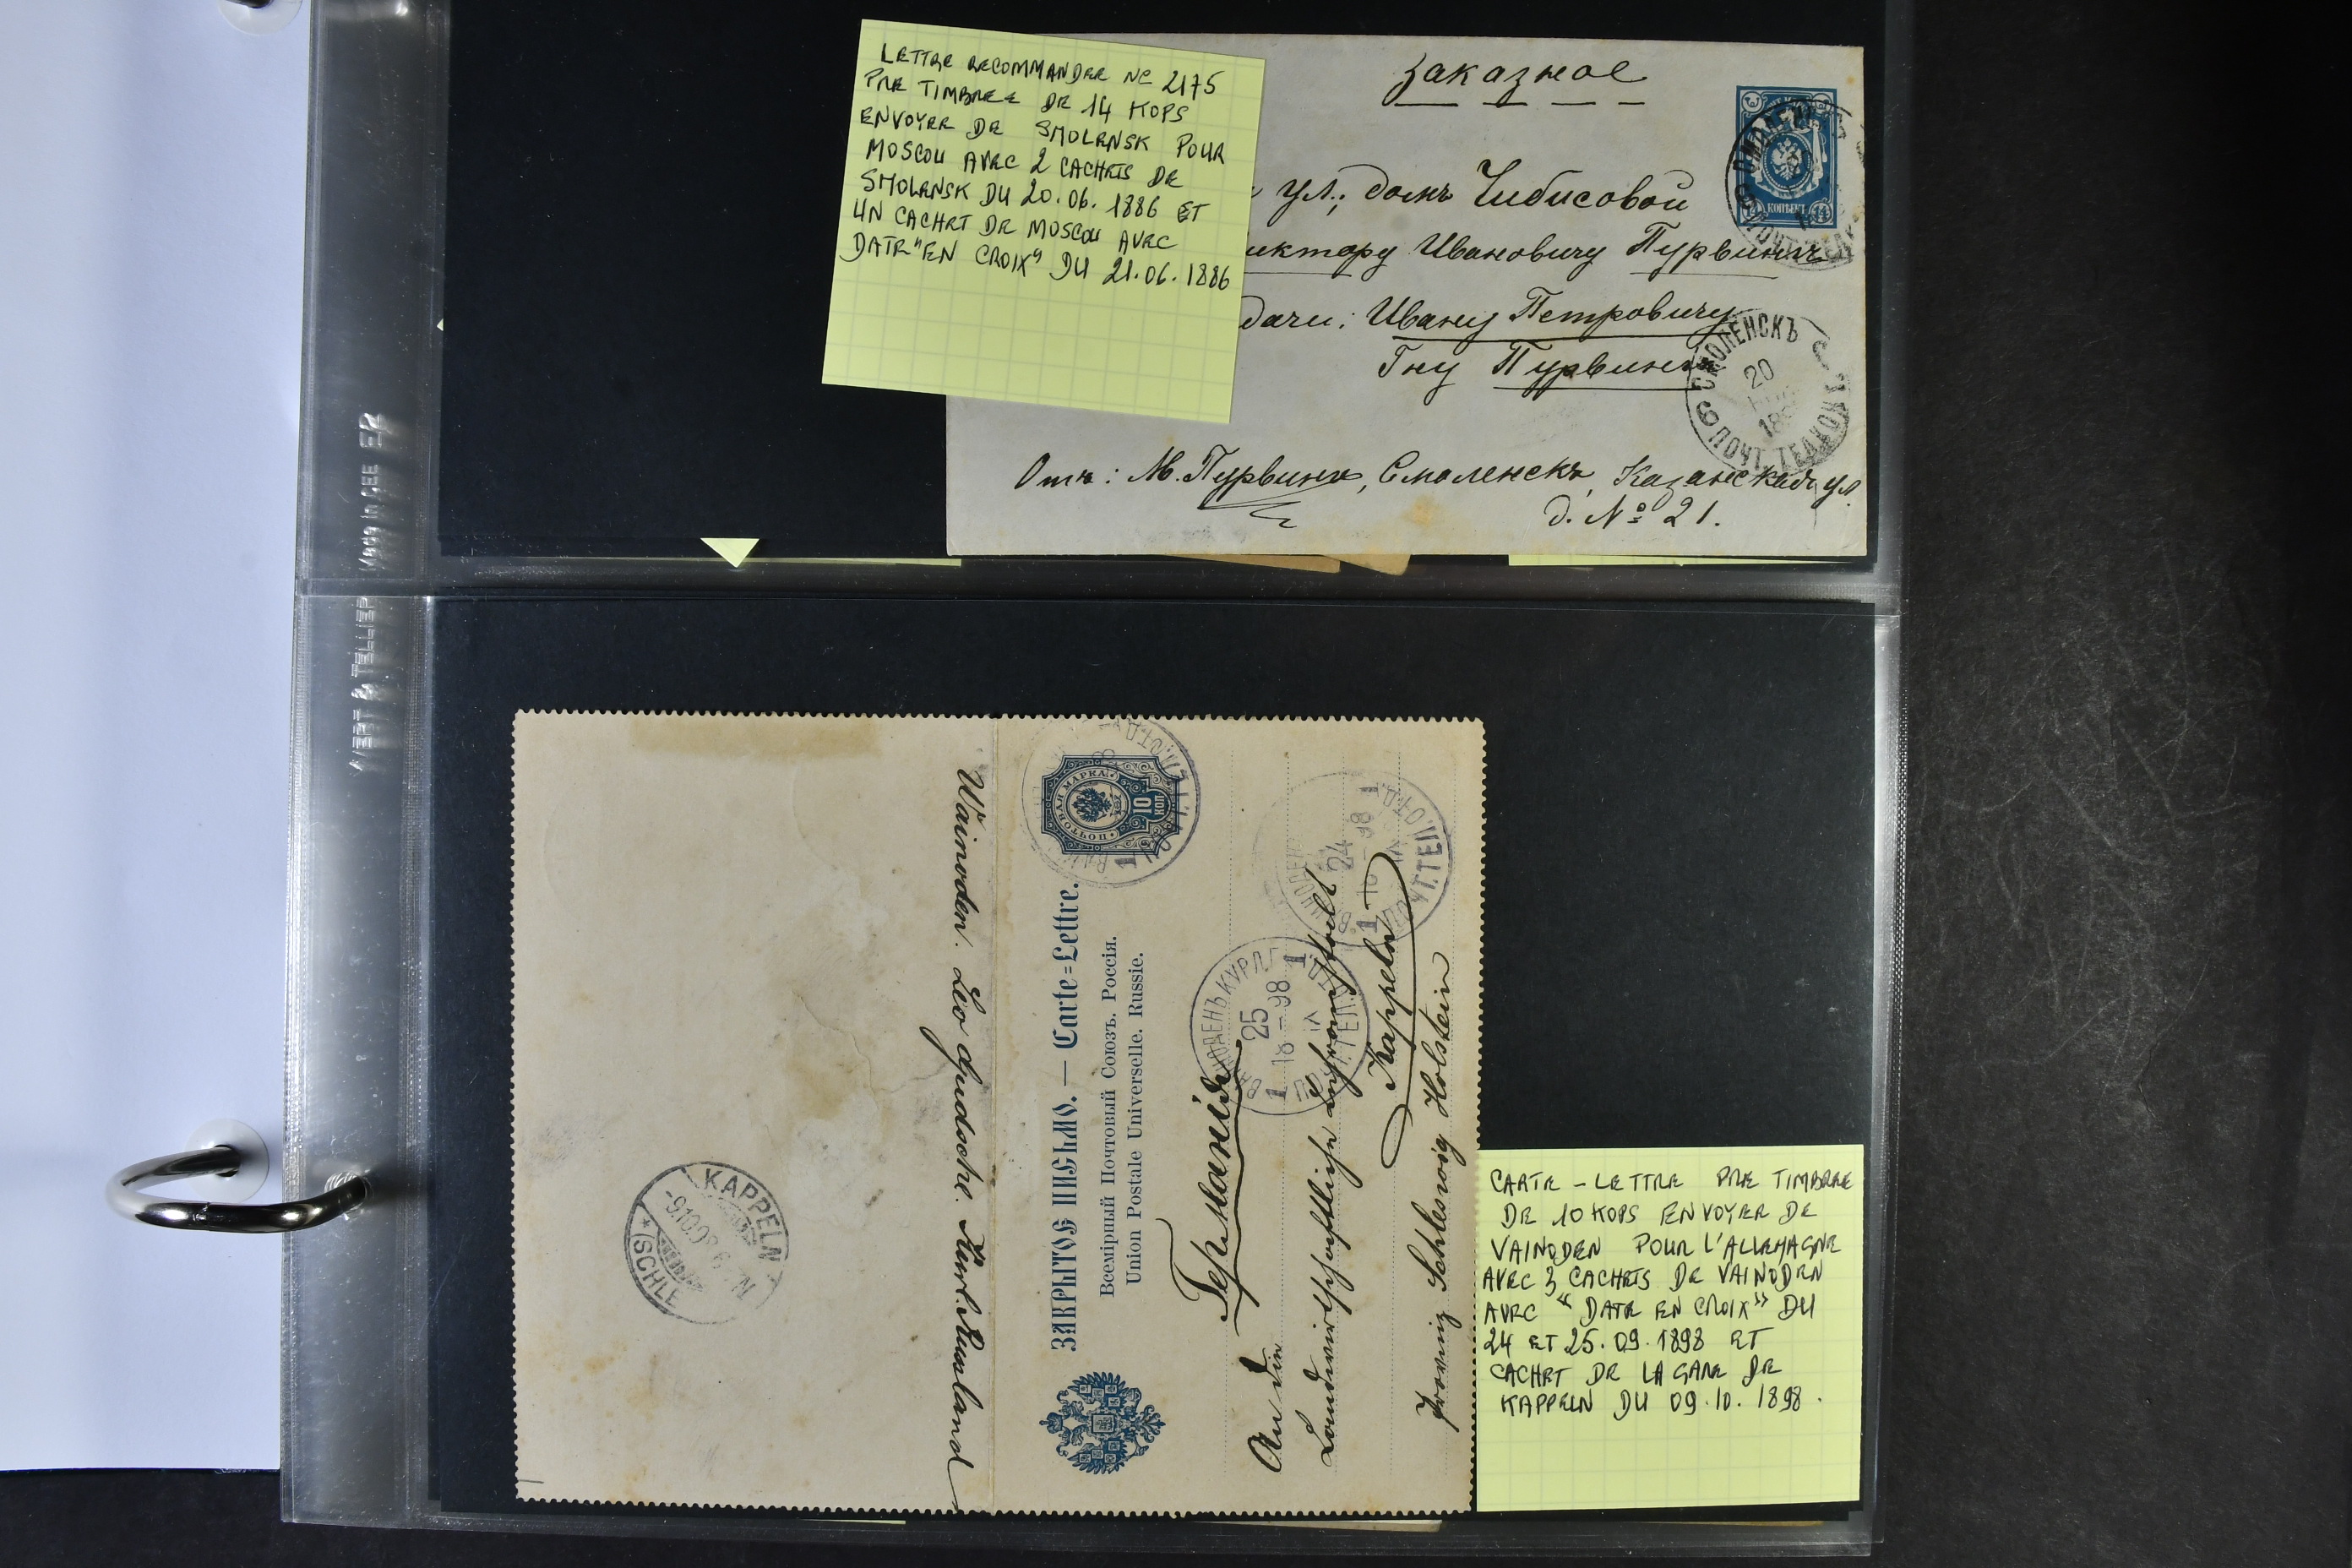 LETTRE RECOMMANDEE No 2175
PRE TIMBREE DE 14 KOPS
ENVOYER DE SMOLENSK POUR
MOSCOU AVEC 2 CACHETS DE
SMOLENSK DU 20.06.1886 ET
UN CACHET DE MOSCOU AVEC
DATE "EN CROIX" DU 21.06.1886
Заказное
ул.; домъ Чибисовой
Ивановичу Пурвинъ
дачи: Ивану Петровичу
Гну Пурвинъ
Отъ: М. Пурвинъ, Смоленскъ, Казанская ул.
д. № 21.
КОПѢЕКЪ 14
СМОЛЕНСКЪ
20
6 ПОЧТ. ТЕЛ. КОН. 6
YVERT & TELLIER Made in CEE
Wainoden. Leo Gudsche. Kurl. Russland
KAPPELN
(SCHLE
ПОЧТОВАЯ МАРКА
10 КОП
ЗАКРЫТОЕ ПИСЬМО. — Carte-Lettre.
Всемірный Почтовый Союзъ. Россія.
Union Postale Universelle. Russie.
Германія
An die
Landwirthschaftliche
Kappeln
Provinz Schleswig Holstein
24
25
1 18-98 1
CARTE - LETTRE PRE TIMBREE
DE 10 KOPS ENVOYER DE
VAINODEN POUR L'ALLEMAGNE
AVEC 3 CACHETS DE VAINODEN
AVEC "DATE EN CROIX" DU
24 ET 25.09.1898 ET
CACHET DE LA GARE DE
KAPPELN DU 09.10.1898.